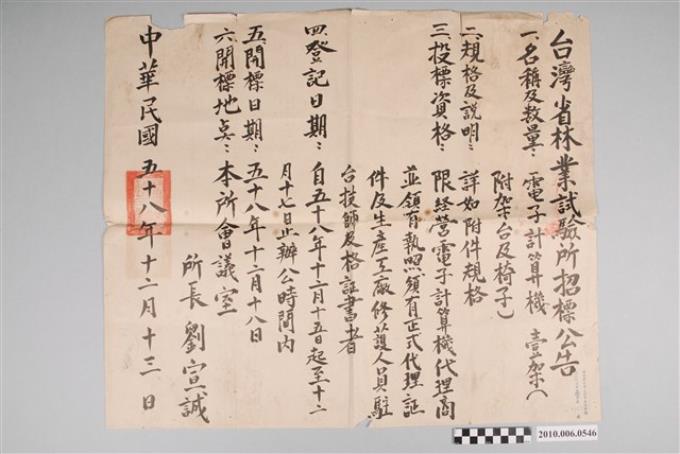 台灣省林業試驗所招標公告
一、名稱及数量：電子計算機 壹架（
附架台及椅子）
二、規格及説明：詳如附件規格
三、投標資格：限経營電子計算機代理商
並領有執照領有正式代理証
件及生產工廠修護人員駐
台技師及格証書者
四、登記日期：自五十八年十二月十五日起至十二
月十七日止辦公時間内
五、開標日期：五十八年十二月十八日
六、開標地点：本所會議室
所長劉宣誠
中華民國五十八年十二月十三日
2010.006.0546